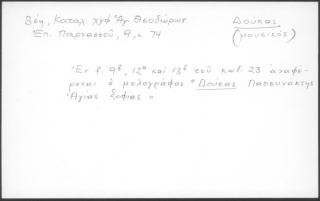 Βέη, Καταλ. χγφ Ἁγ. Θεοδώρων
Δούκας
Ἐπ. Παρνασσοῦ, 9, σ. 74
(μουσικός)
Ἐν φ. 9β, 12α καὶ 13β τοῦ κωδ. 23 ἀναφέ-
ρεται ὁ μελογράφος "Δούκας Πασυνάκτης
Ἁγίας Σοφίας"